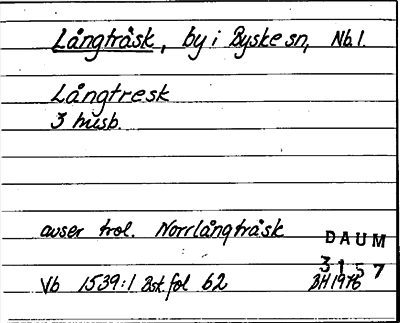 Långträsk, by i Byske sn, Nb.l.
Långtresk
3 husb.
avser trol. Norrlångträsk
DAUM
3157
Vb 1539:1 Bsk fol 62 BH 1976